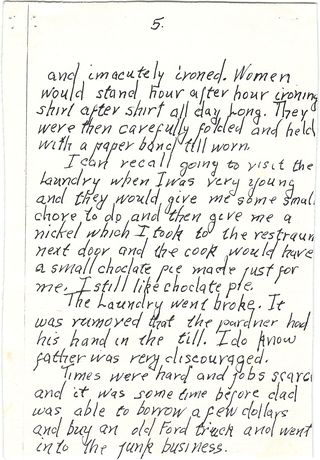 5.
and imacutely ironed. Women
would stand hour after hour ironing
shirt after shirt all day long. They
were then carefully folded and held
with a paper band till worn.
I can recall going to visit the
Laundry when I was very young
and they would give me some small
chore to do and then give me a
nickel which I took to the restraun
next door and the cook would have
a small choclate pie made just for
me. I still like choclate pie.
The Laundry went broke. It
was rumored that the pardner had
his hand in the till. I do know
father was very discouraged.
Times were hard and jobs scarce
and it was some time before dad
was able to borrow a few dollars
and buy an old Ford truck and went
into the junk business.